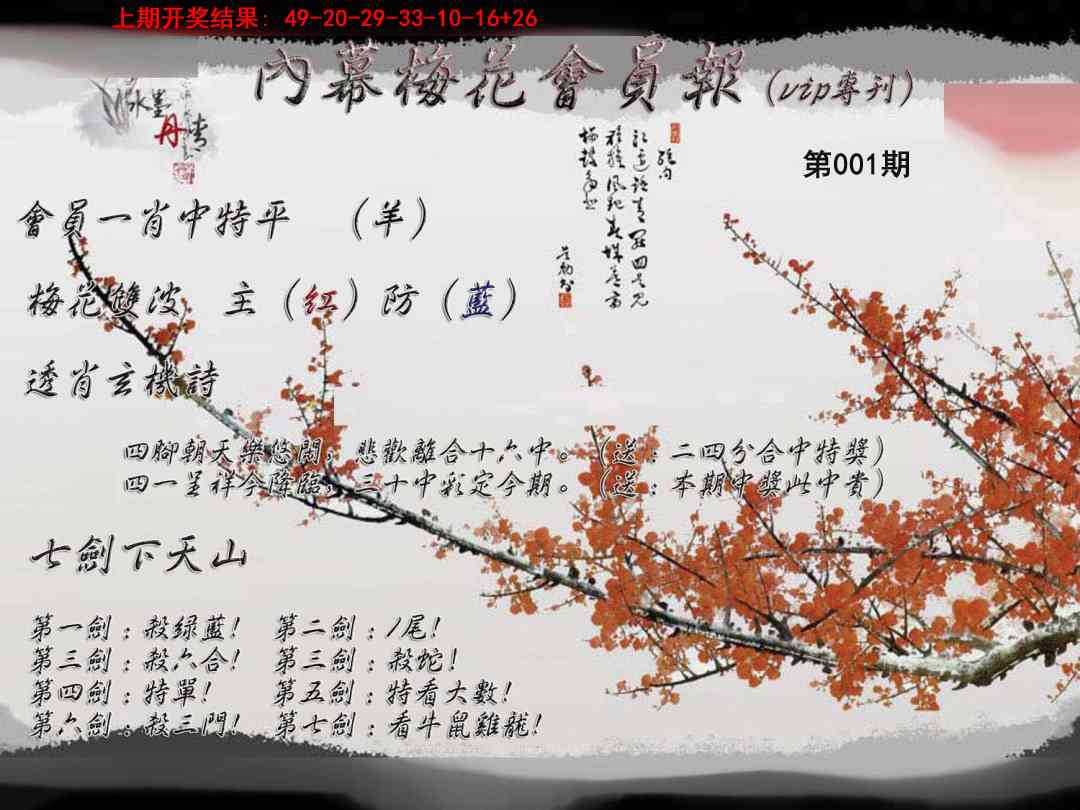 上期开奖结果: 49-20-29-33-10-16+26
內幕梅花會員報(vip專刊)
水墨丹青
第001期
會員一肖中特平 (羊)
梅花雙波 主(紅)防(藍)
透肖玄機詩
四腳朝天樂悠閒,悲歡離合十六中。(送:二四分合中特獎)
四一呈祥今降臨,三十中彩定今期。(送:本期中獎此中貴)
七劍下天山
第一劍:殺绿藍! 第二劍:1尾!
第三劍:殺六合! 第三劍:殺蛇!
第四劍:特單! 第五劍:特看大數!
第六劍:殺三門! 第七劍:看牛鼠雞龍!